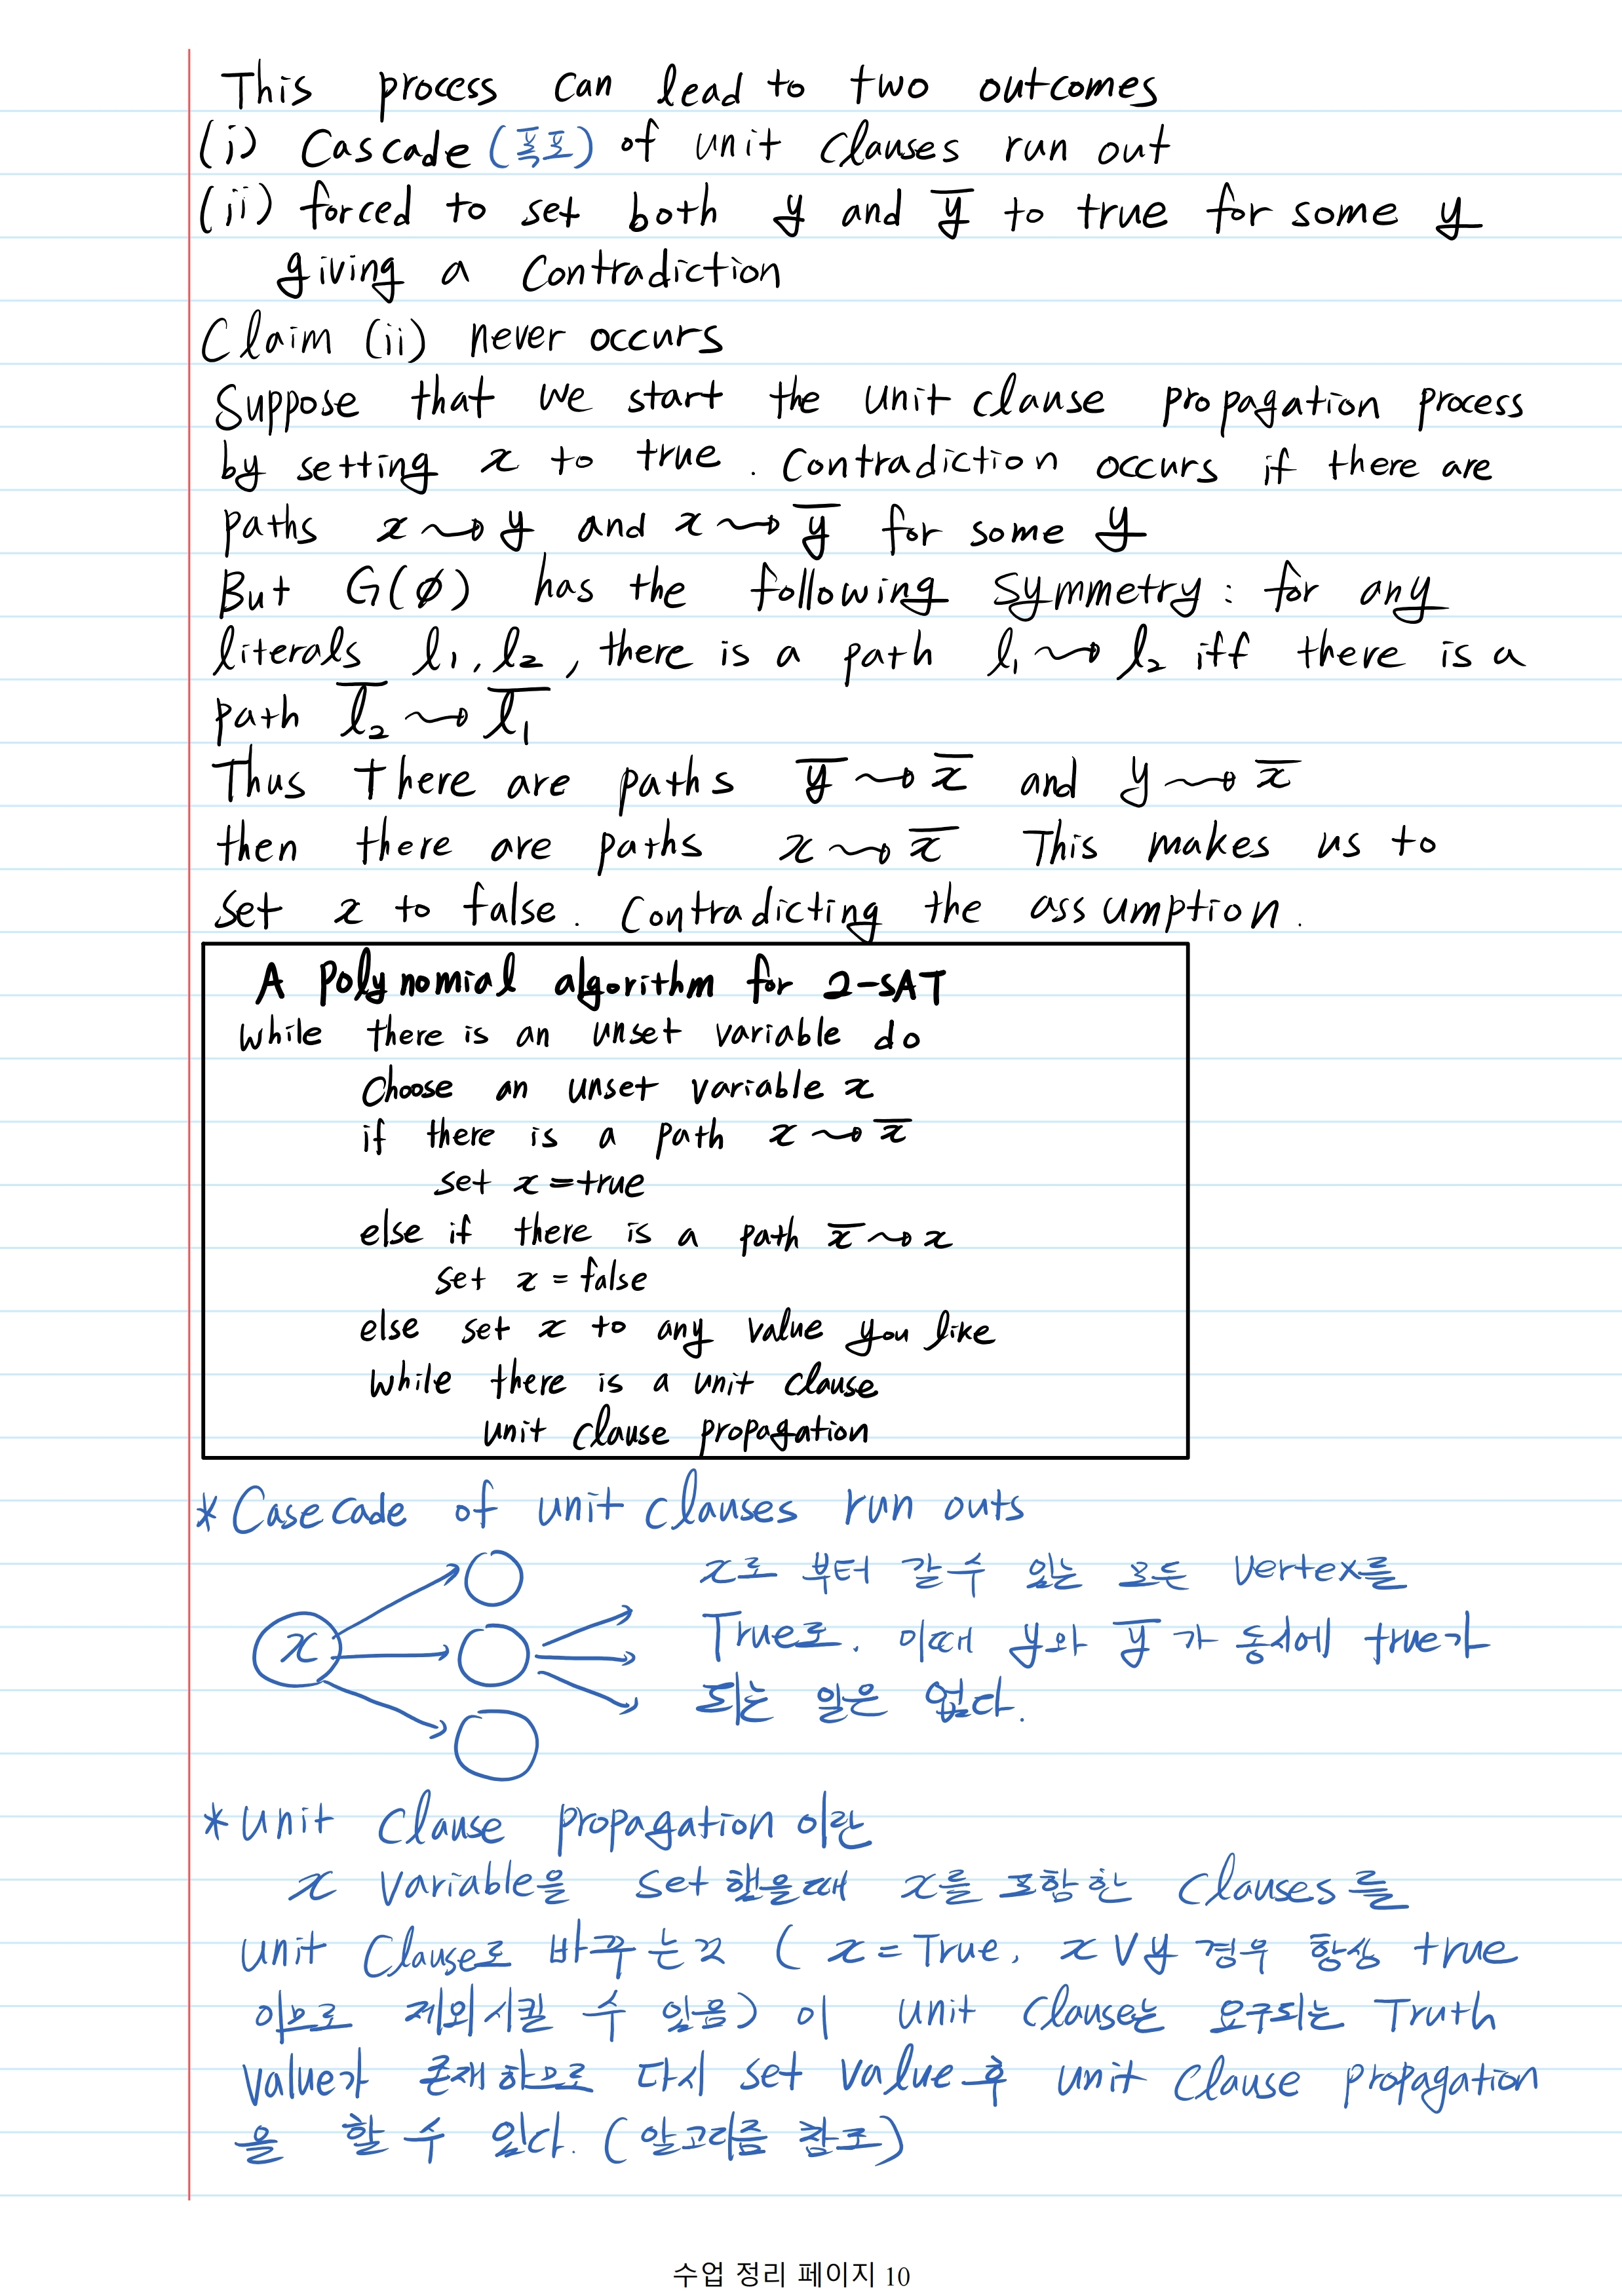 This process can lead to two outcomes
(i) Cascade (폭포) of unit clauses run out
(ii) forced to set both y and y̅ to true for some y
giving a contradiction
Claim (ii) never occurs
Suppose that we start the unit clause propagation process
by setting x to true. Contradiction occurs if there are
paths x ⇝ y and x ⇝ y̅ for some y
But G(ø) has the following symmetry : for any
literals l₁, l₂, there is a path l₁ ⇝ l₂ iff there is a
path l̅₂ ⇝ l̅₁
Thus there are paths y̅ ⇝ x̅ and y ⇝ x̅
then there are paths x ⇝ x̅ This makes us to
set x to false. Contradicting the assumption.
A polynomial algorithm for 2-SAT
while there is an unset variable do
choose an unset variable x
if there is a path x ⇝ x̅
set x = true
else if there is a path x̅ ⇝ x
set x = false
else set x to any value you like
while there is a unit clause
unit clause propagation
* Casecade of unit clauses run outs
x로 부터 갈수 있는 모든 vertex를
True로. 이때 y와 y̅가 동시에 true가
되는 일은 없다.
x
* unit clause propagation 이란
x variable을 set 했을때 x를 포함한 clauses를
unit clause로 바꾸는것 ( x = True, x ∨ y 경우 항상 true
이므로 제외시킬 수 있음) 이 unit clause는 요구되는 Truth
value가 존재하므로 다시 set value 후 unit clause propagation
을 할 수 있다. (알고리즘 참조)
수업 정리 페이지 10